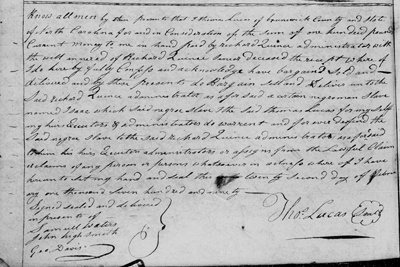 Know all men by these presents that I Thomas Lucas of Brunswick County and State
of North Carolina for and in Consideration of the Sum of one hundred pounds
Current money to me in hand paid by Richard Quince administrator with
the will annexed of Richard Quince Senior deceased the receipt where of
I do hereby fully Confess and acknowledge have bargained Sold and
delivered and by these Presents do Bargain Sell and Deliver unto the
Said Richard Quince administrator as afor said a certain negroman Slave
named Isaac which Said negroe Slave I the Said thomas Lucas for my Self
my heirs Executors & administrators do warrent and forever defend the
Said negroe Slave to the Said Richard Quince administrator as aforesaid
him his heirs Executors administrators or assigns from the Lawfull Claim
or claims of any person or persons whatsoever in witness where of I have
hereunto Set my hand and Seal this twenty Second day of
one thousand Seven hundred and ninety
Signed sealed and delivered
in presents of
Samuel Waters
John high Smith
Geo Davis
Thos. Lucas Seal